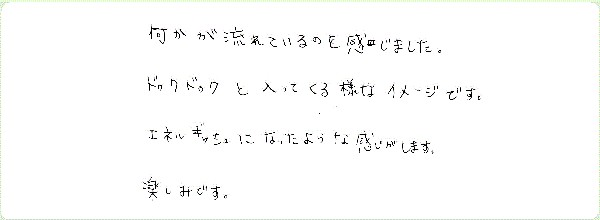 何かが流れているのを感じました。
ドゥクドゥクと入ってくる様なイメージです。
エネルギッチュになったような感じがします。
楽しみです。